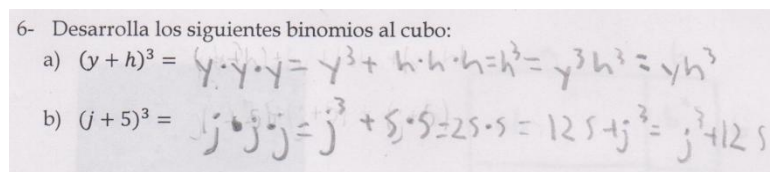 6- Desarrolla los siguientes binomios al cubo:
a) (y + h)³ = y·y·y = y³ + h·h·h = h³ = y³h³ = yh³
b) (j + 5)³ = j·j·j = j³ + 5·5=25·5 = 125+j³ = j³+125